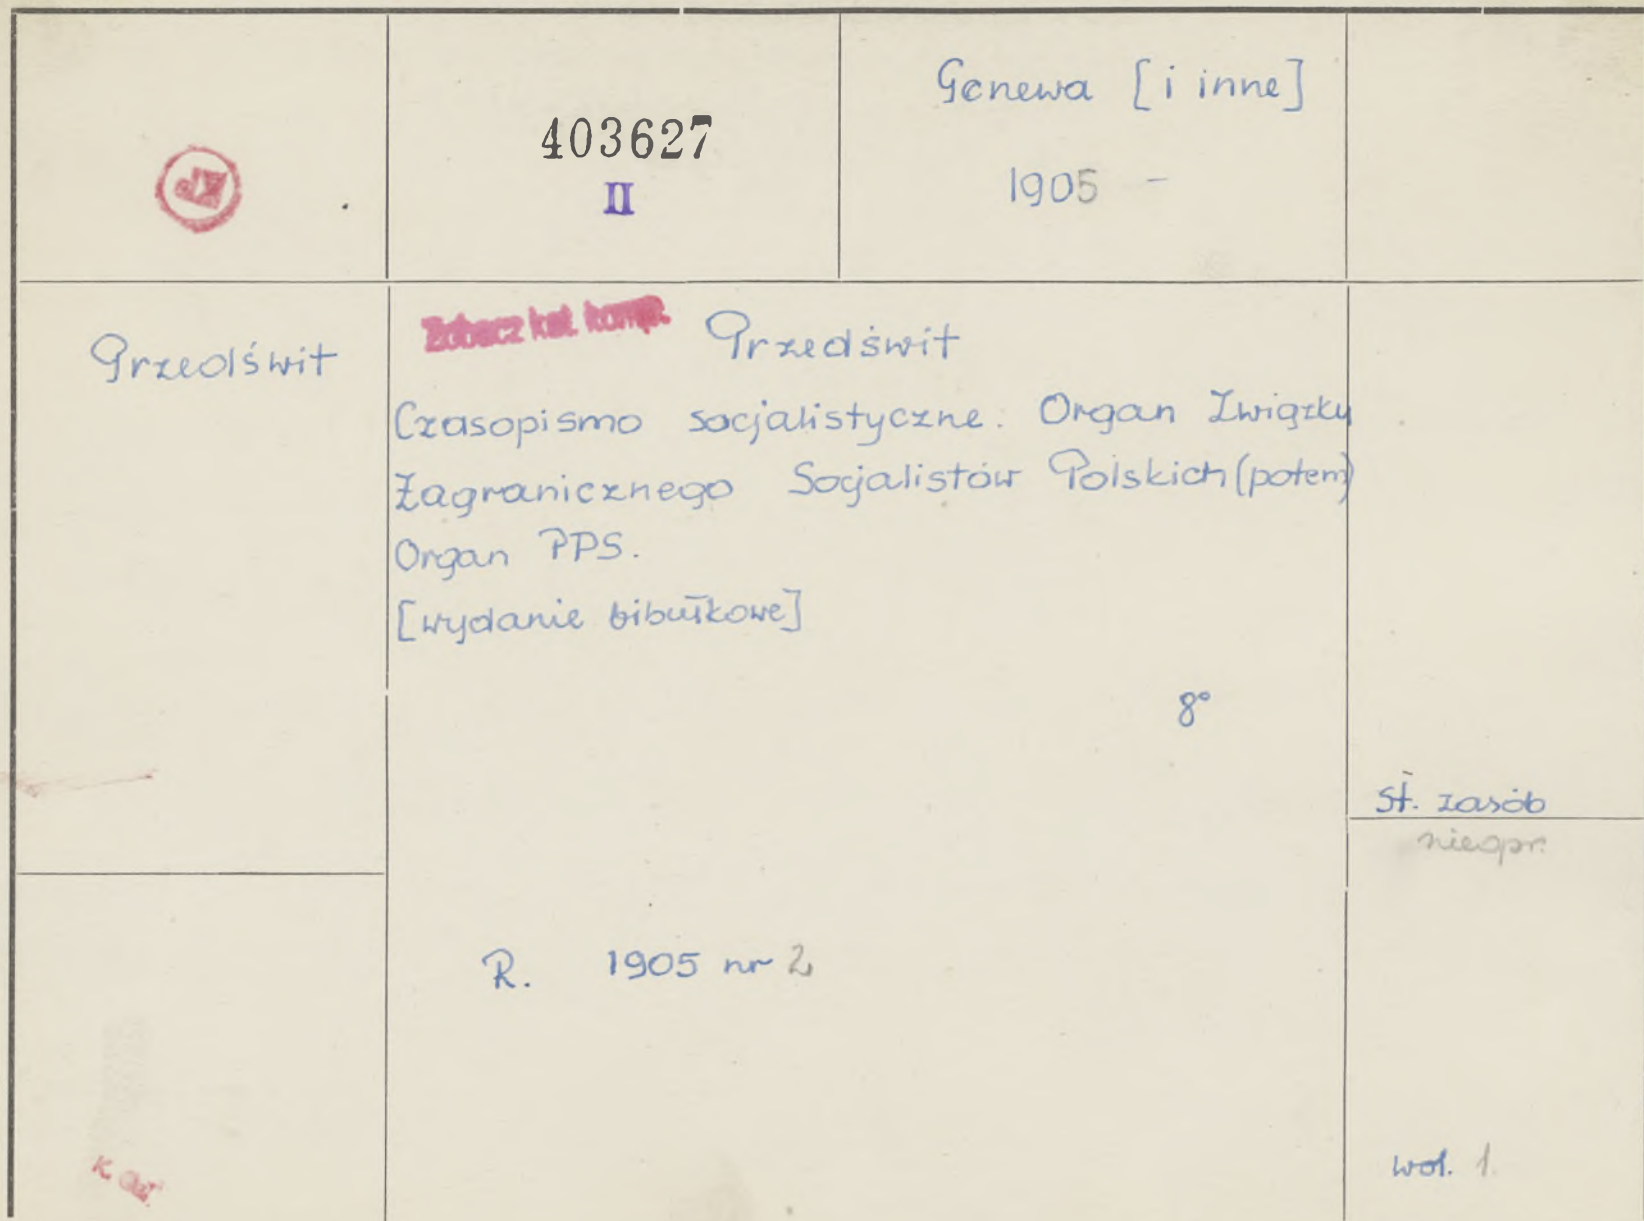 403627
II
Genewa [i inne]
1905 -
Przedświt
Zobacz kat. komp.
Przedświt
Czasopismo socjalistyczne. Organ Związku
Zagranicznego Socjalistów Polskich (potem)
Organ PPS.
[wydanie bibułkowe]
8°
st. zasób
nieopr.
R. 1905 nr 2
wol. 1.